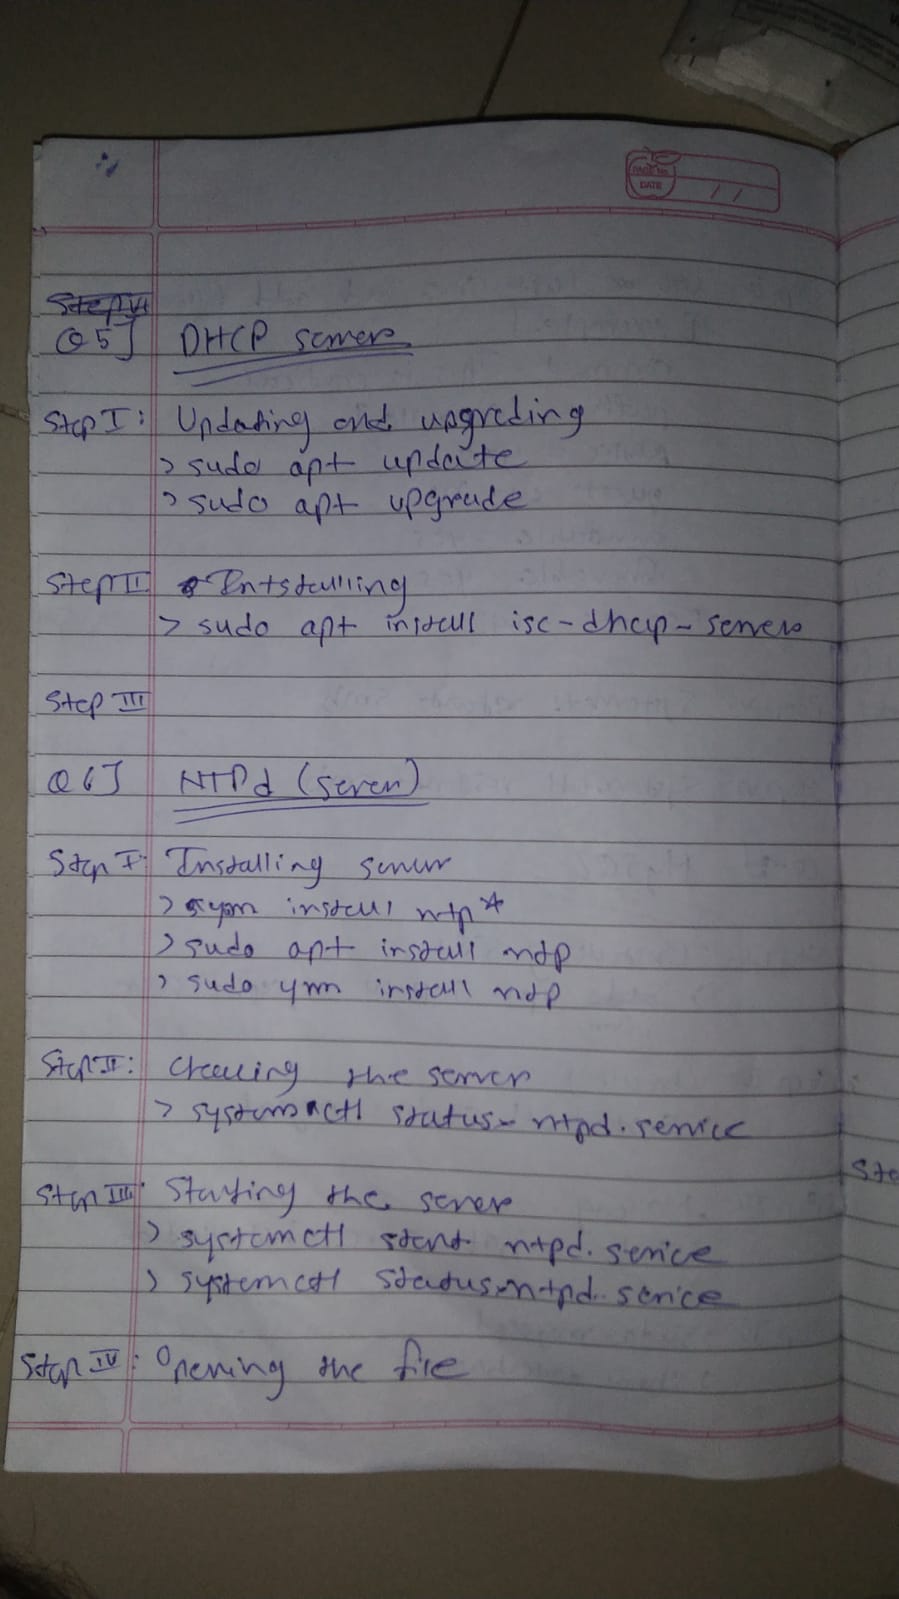 PAGE No.
DATE / /
Step VI
Q5] DHCP server
Step I: Updating and upgrading
> sudo apt update
> sudo apt upgrade
Step II Intstalling
> sudo apt install isc-dhcp-server
Step III
Q6] NTPd (server)
Step I: Installing server
> yum install ntp*
> sudo apt install ntp
> sudo yum install ntp
Step II: Checking the server
> systemctl status ntpd.service
Step III: Starting the server
> systemctl start ntpd.service
> systemctl status ntpd.service
Ste
Step IV: Opening the file